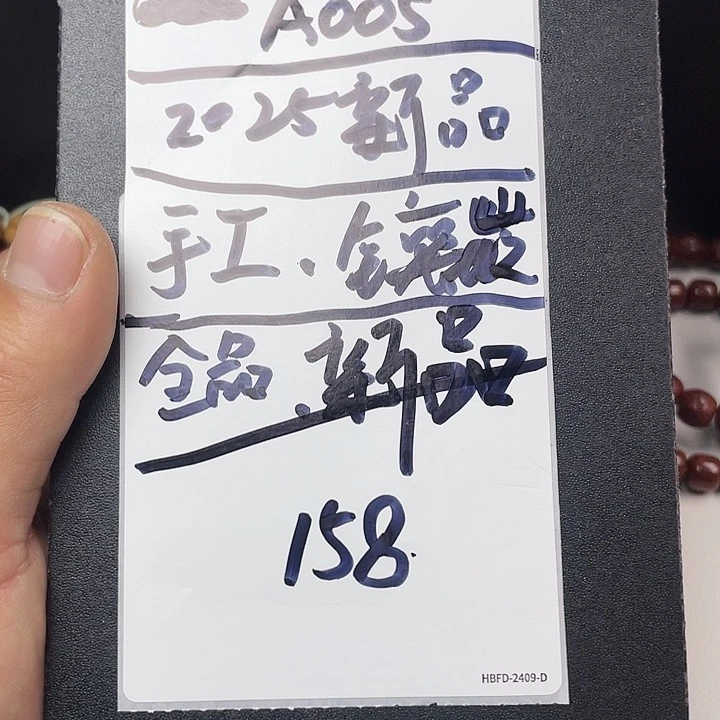 A005
2025新品
手工、镶嵌
全品、新品
158
HBFD-2409-D